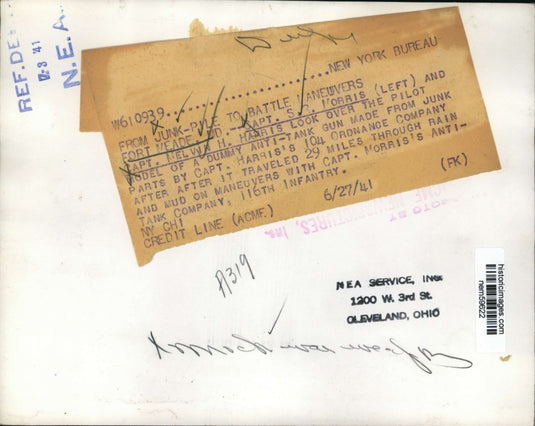 REF. DE
'41
N.E.A.
W610939..................NEW YORK BUREAU
FROM JUNK-PILE TO BATTLE MANEUVERS
FORT MEADE, MD.--CAPT. S.C. MORRIS (LEFT) AND
CAPT. MELVIN H. HARRIS LOOK OVER THE PILOT
MODEL OF A DUMMY ANTI-TANK GUN MADE FROM JUNK
PARTS BY CAPT. HARRIS'S 104 ORDNANCE COMPANY
AFTER AFTER IT TRAVELED 29 MILES THROUGH RAIN
AND MUD ON MANEUVERS WITH CAPT. MORRIS'S ANTI-
TANK COMPANY, 116TH INFANTRY.
NY CHI 6/27/41 (FK)
CREDIT LINE (ACME)
PHOTO BY
ACME NEWSPICTURES, Inc.
A319
NEA SERVICE, Inc.
1200 W. 3rd St.
CLEVELAND, OHIO
historicimages.com
nem59622